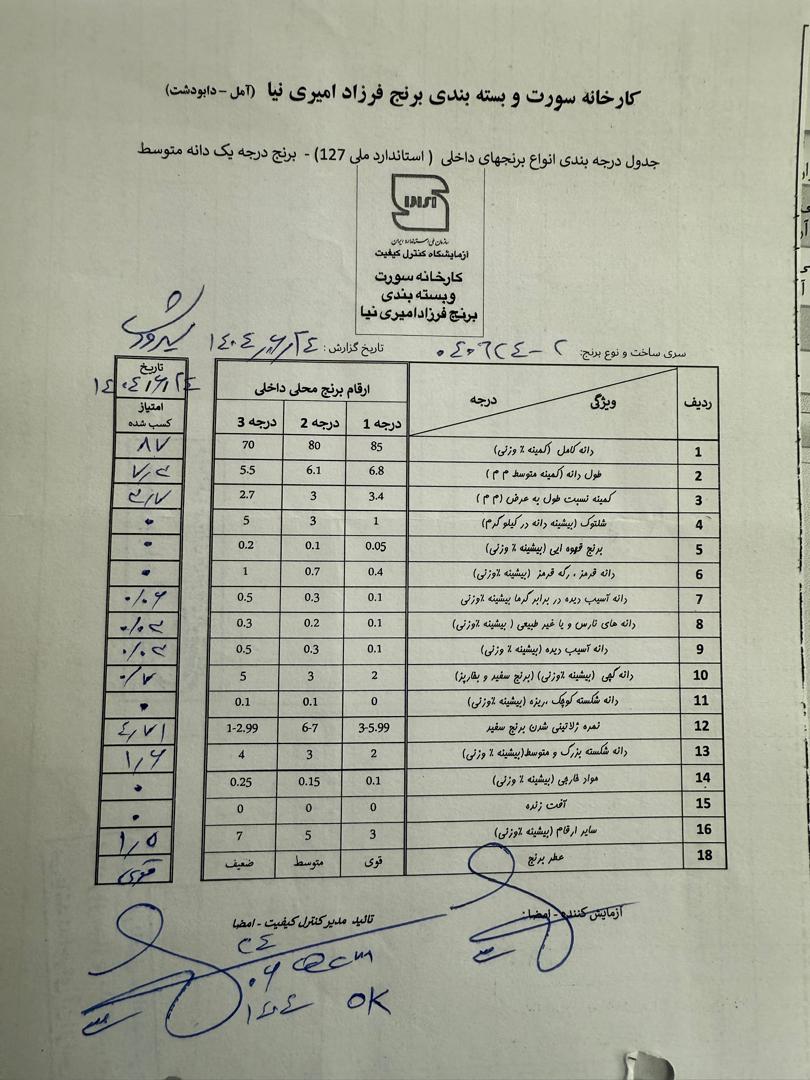 کارخانه سورت و بسته بندی برنج فرزاد امیری نیا (آمل - دابودشت)
جدول درجه بندی انواع برنجهای داخلی ( استاندارد ملی 127) - برنج درجه یک دانه متوسط
سازمان ملی استاندارد ایران
آزمایشگاه کنترل کیفیت
کارخانه سورت
و بسته بندی
برنج فرزاد امیری نیا
سری ساخت و نوع برنج: ۰۴۰۶۲۴-۲ تاریخ گزارش: ۱۴۰۴/۶/۲۴
ردیف ویژگی درجه ارقام برنج محلی داخلی تاریخ ۱۴۰۴/۶/۲۴
درجه 1 درجه 2 درجه 3 امتیاز کسب شده
1 دانه کامل (کمینه ٪ وزنی) 85 80 70 ۸۷
2 طول دانه (کمینه متوسط م م) 6.8 6.1 5.5 ۷٫۳
3 کمینه نسبت طول به عرض (م م) 3.4 3 2.7 ۳٫۷
4 شلتوک (بیشینه دانه در کیلوگرم) 1 3 5 ۰
5 برنج قهوه ایی (بیشینه ٪ وزنی) 0.05 0.1 0.2 ۰
6 دانه قرمز ، رگه قرمز (بیشینه ٪وزنی) 0.4 0.7 1 ۰
7 دانه آسیب دیده در برابر گرما بیشینه ٪وزنی 0.1 0.3 0.5 ۰٫۰۶
8 دانه های نارس و یا غیر طبیعی ( بیشینه ٪وزنی) 0.1 0.2 0.3 ۰٫۰۳
9 دانه آسیب دیده (بیشینه ٪ وزنی) 0.1 0.3 0.5 ۰٫۰۳
10 دانه گچی (بیشینه ٪وزنی) (برنج سفید و بخارپز) 2 3 5 ۰٫۷
11 دانه شکسته کوچک ،ریزه (بیشینه ٪وزنی) 0 0.1 0.1 ۰
12 نمره ژلاتینی شدن برنج سفید 3-5.99 6-7 1-2.99 ۴٫۷۱
13 دانه شکسته بزرگ و متوسط(بیشینه ٪ وزنی) 2 3 4 ۱٫۶
14 مواد خارجی (بیشینه ٪ وزنی) 0.1 0.15 0.25 ۰
15 آفت زنده 0 0 0 ۰
16 سایر ارقام (بیشینه ٪وزنی) 3 5 7 ۱٫۵
18 عطر برنج قوی متوسط ضعیف قوی
آزمایش کننده - امضا: تائید مدیر کنترل کیفیت - امضا
۲۴
۰۶
۱۴۰۴ OK